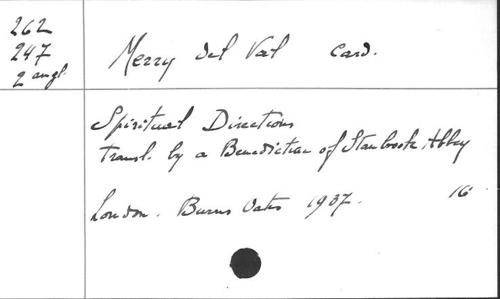 262
247
2 angl.
Merry del Val Card.
Spiritual Directions
transl. by a Benedictian of Stanbrook Abbey
London. Burns Oates 1937. 16